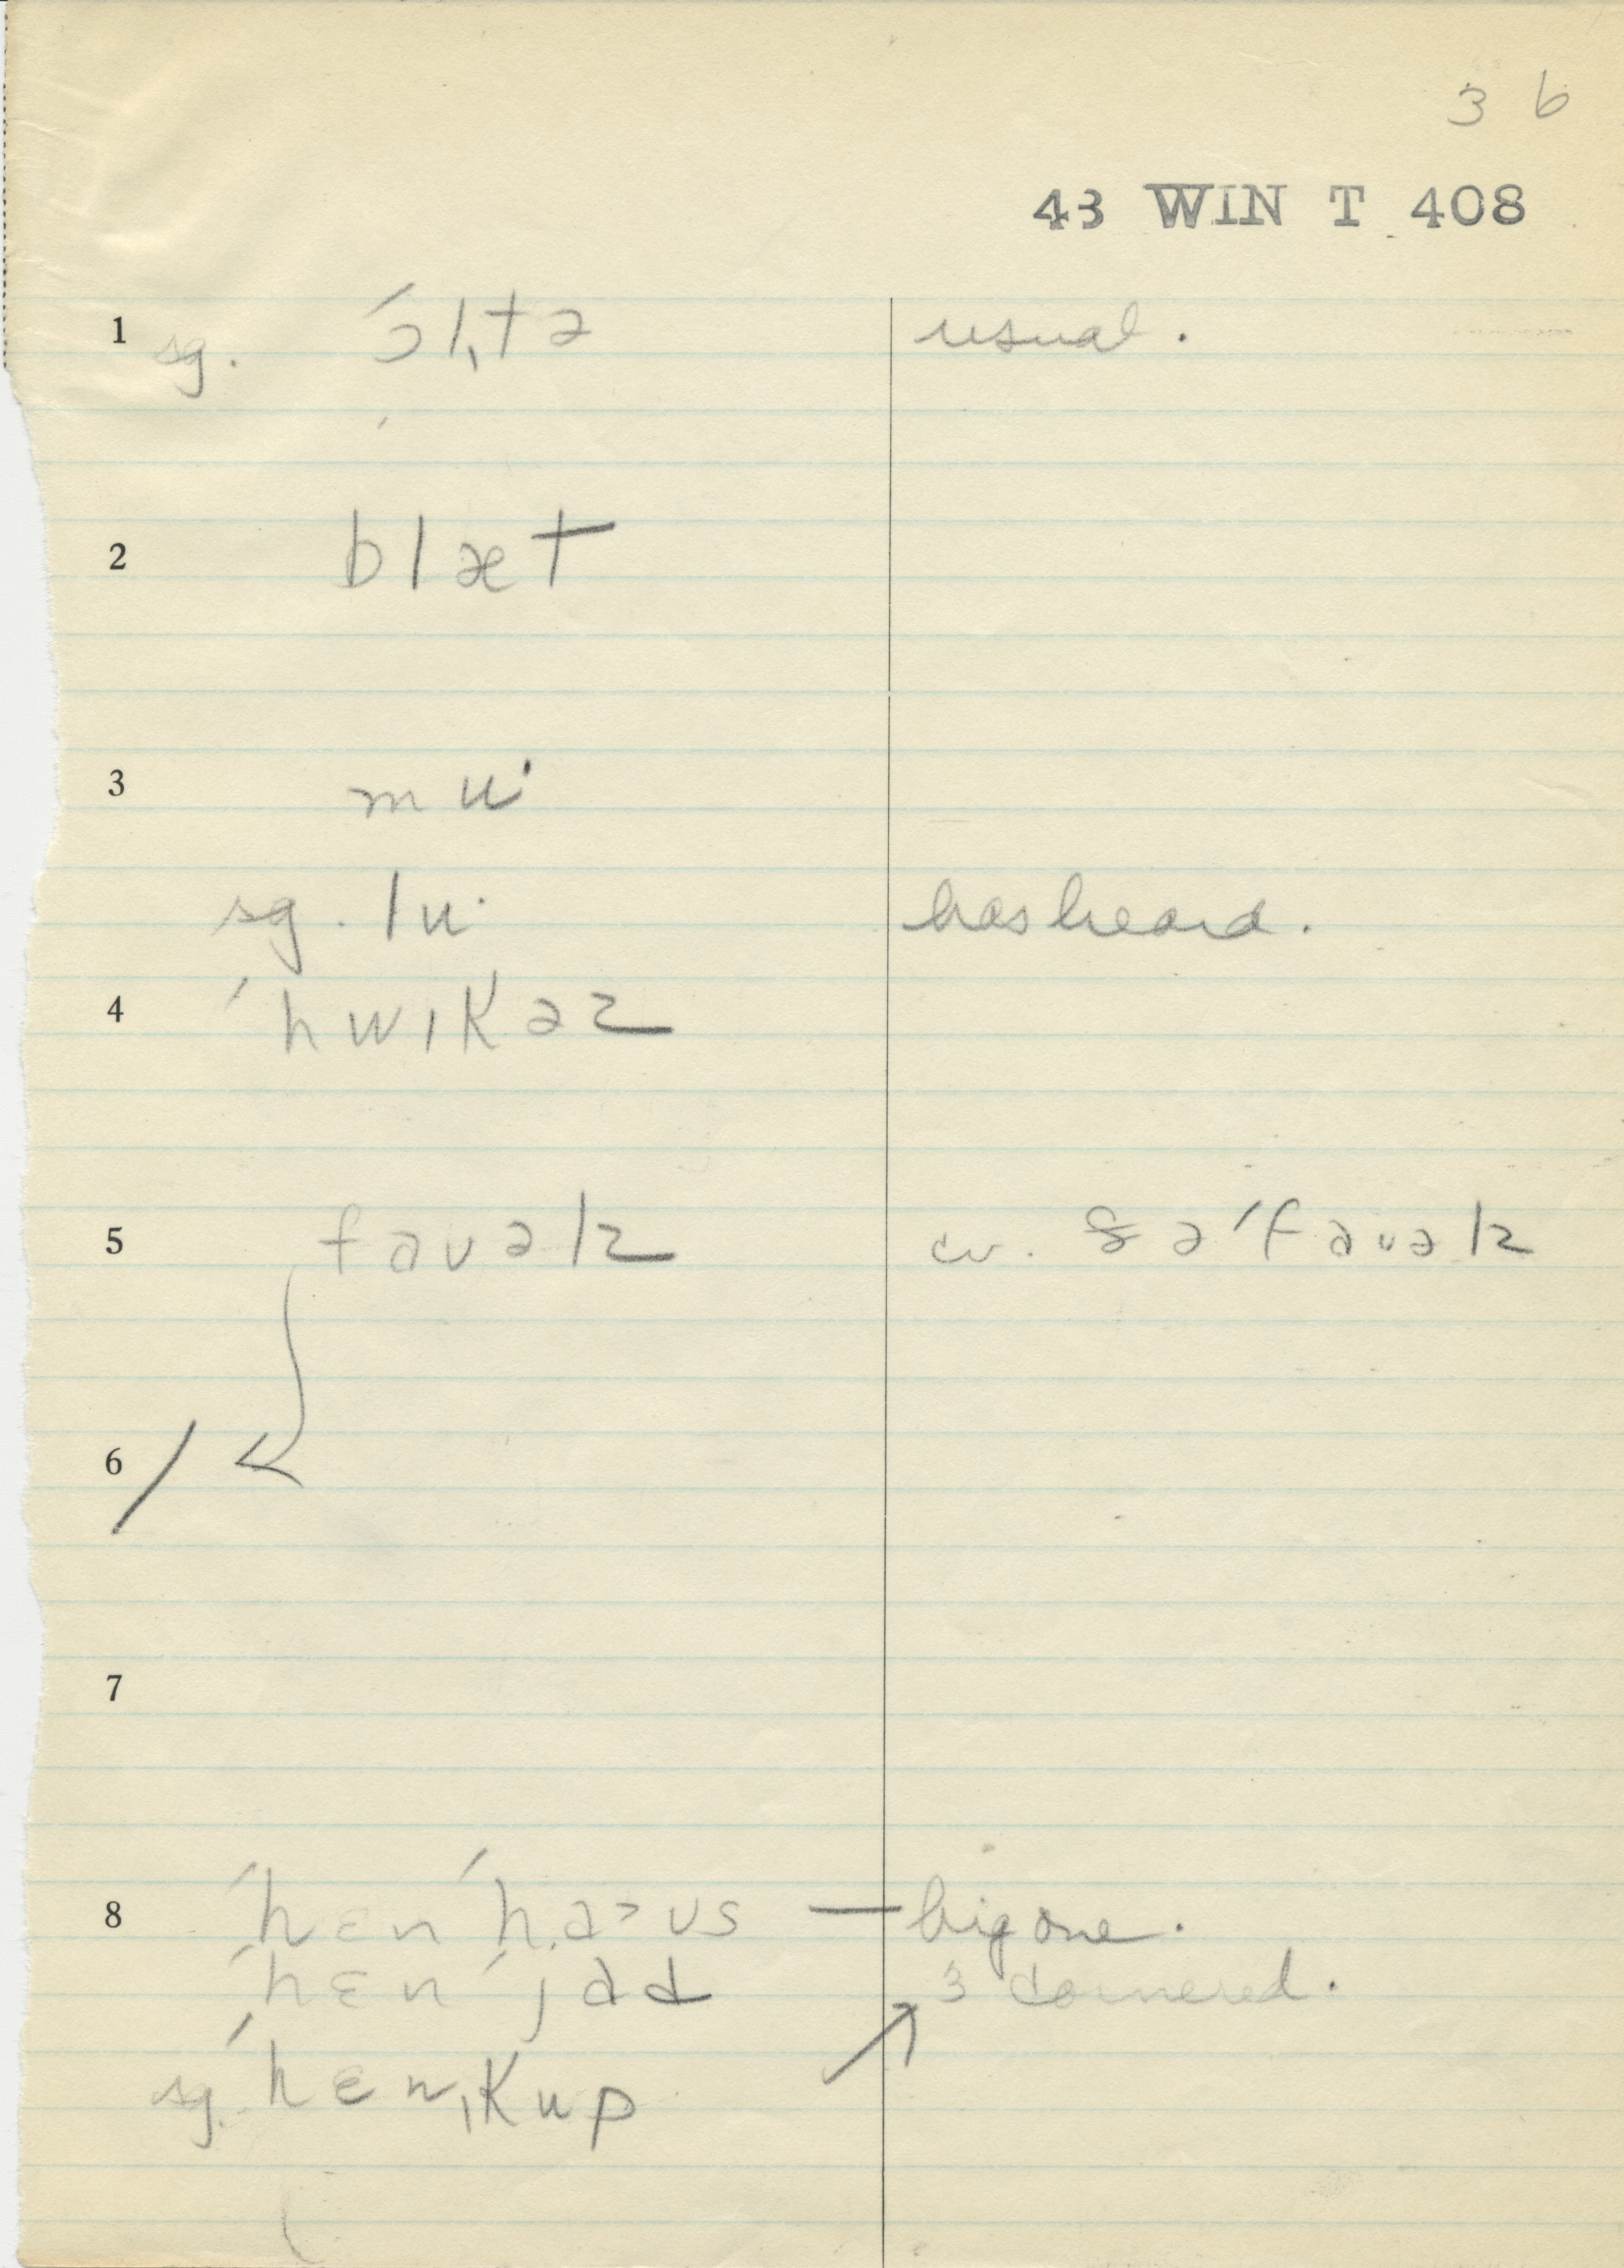 3 6
43 WIN T 408
1 sg. ˈɔlˌtə usual.
2 blæt
3 mu·
sg. lu· has heard.
4 ˈhwɪkəz
5 favəlz cv. ðəˈfavəlz
6
7
8 ˈhɛnˈhaʊs — big one.
ˈhɛnˈjad 3 cornered.
sg. ˈhɛnˌkup